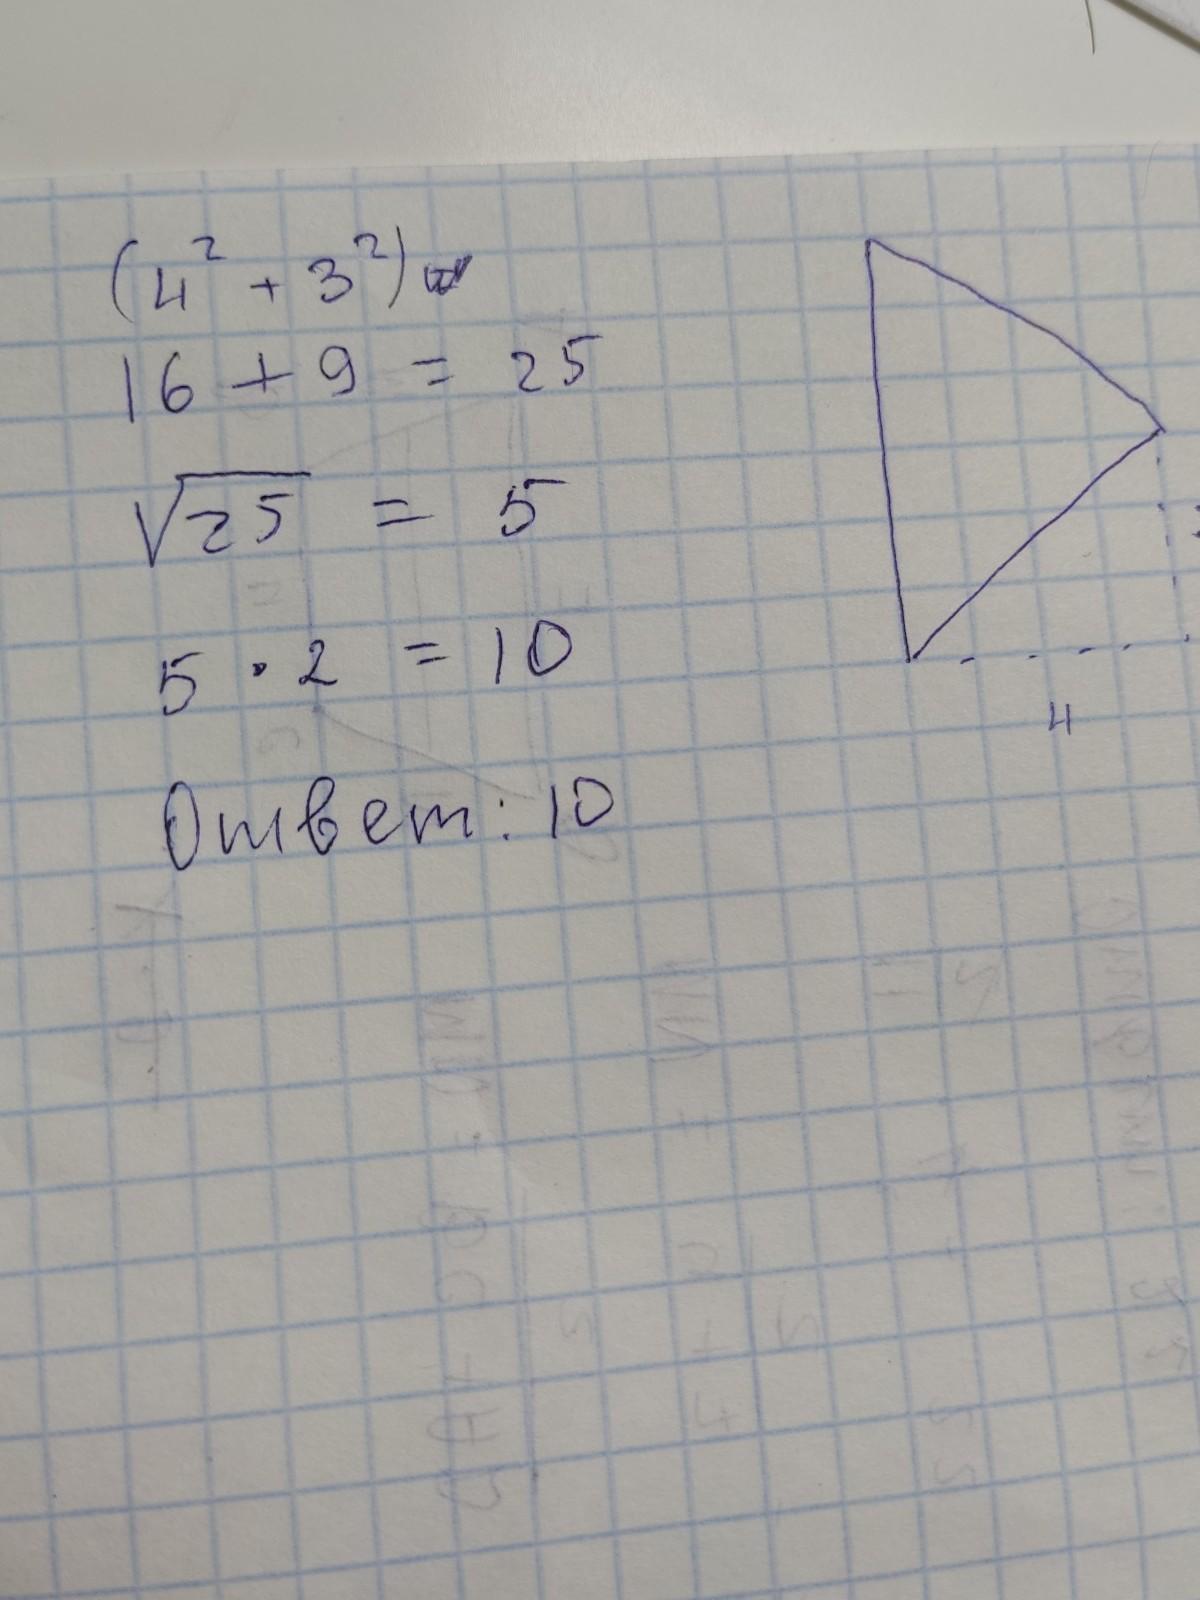 (4² + 3²)
16 + 9 = 25
√25 = 5
5 · 2 = 10
Ответ: 10
4